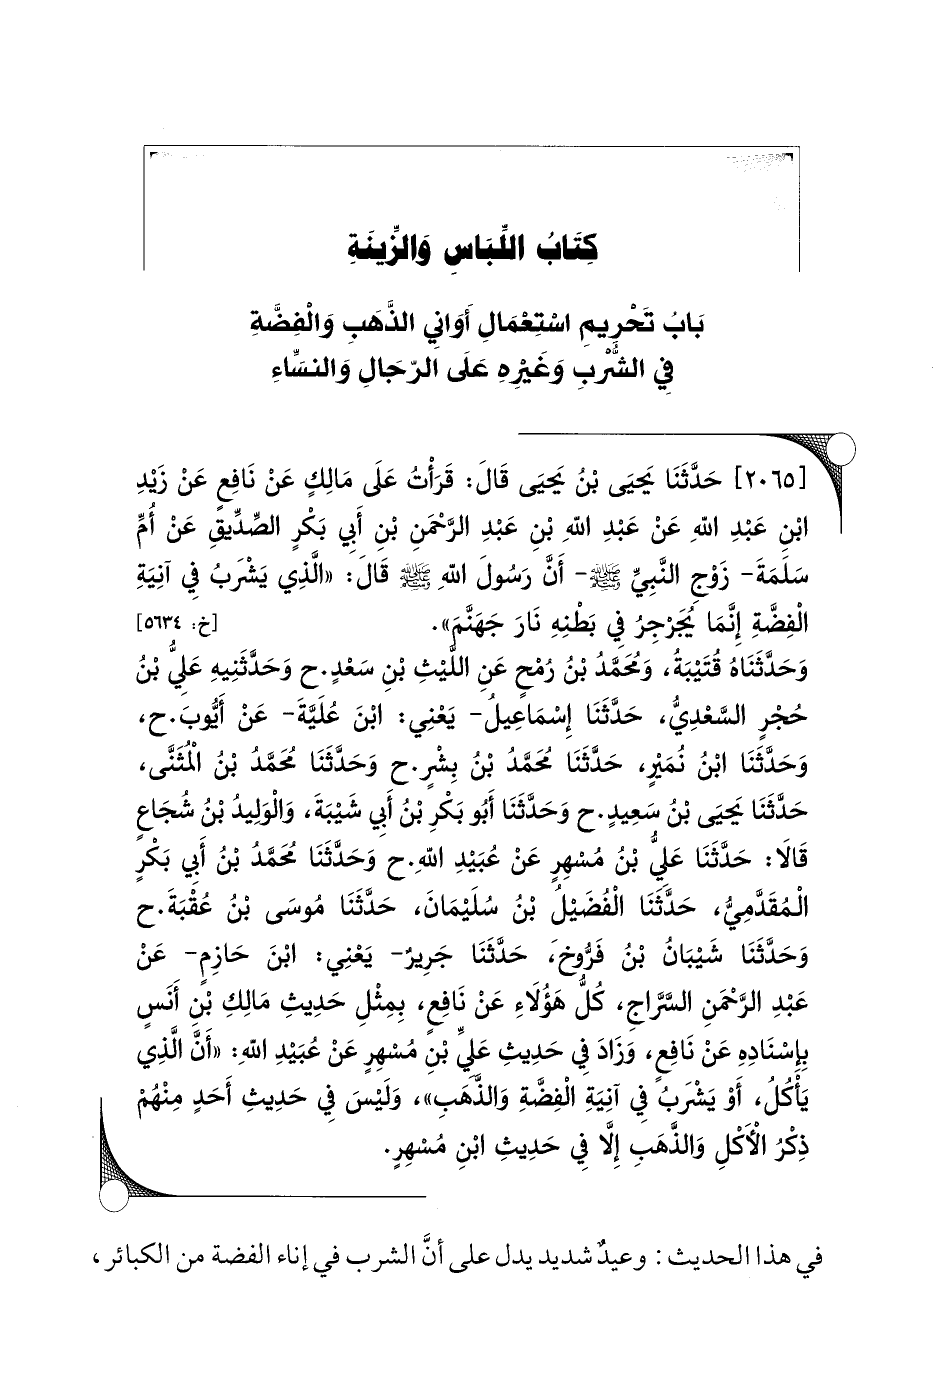 كِتَابُ اللِّبَاسِ وَالزِّينَةِ
بَابُ تَحْرِيمِ اسْتِعْمَالِ أَوَانِي الذَّهَبِ وَالْفِضَّةِ
فِي الشُّرْبِ وَغَيْرِهِ عَلَى الرِّجَالِ وَالنِّسَاءِ
[٢٠٦٥] حَدَّثَنَا يَحْيَى بْنُ يَحْيَى قَالَ: قَرَأْتُ عَلَى مَالِكٍ عَنْ نَافِعٍ عَنْ زَيْدِ
ابْنِ عَبْدِ اللهِ عَنْ عَبْدِ اللهِ بْنِ عَبْدِ الرَّحْمَنِ بْنِ أَبِي بَكْرٍ الصِّدِّيقِ عَنْ أُمِّ
سَلَمَةَ- زَوْجِ النَّبِيِّ ﷺ- أَنَّ رَسُولَ اللهِ ﷺ قَالَ: «الَّذِي يَشْرَبُ فِي آنِيَةِ
الْفِضَّةِ إِنَّمَا يُجَرْجِرُ فِي بَطْنِهِ نَارَ جَهَنَّمَ». [خ: ٥٦٣٤]
وَحَدَّثَنَاهُ قُتَيْبَةُ، وَمُحَمَّدُ بْنُ رُمْحٍ عَنِ اللَّيْثِ بْنِ سَعْدٍ.ح وَحَدَّثَنِيهِ عَلِيُّ بْنُ
حُجْرٍ السَّعْدِيُّ، حَدَّثَنَا إِسْمَاعِيلُ- يَعْنِي: ابْنَ عُلَيَّةَ- عَنْ أَيُّوبَ.ح،
وَحَدَّثَنَا ابْنُ نُمَيْرٍ، حَدَّثَنَا مُحَمَّدُ بْنُ بِشْرٍ.ح وَحَدَّثَنَا مُحَمَّدُ بْنُ الْمُثَنَّى،
حَدَّثَنَا يَحْيَى بْنُ سَعِيدٍ.ح وَحَدَّثَنَا أَبُو بَكْرِ بْنُ أَبِي شَيْبَةَ، وَالْوَلِيدُ بْنُ شُجَاعٍ
قَالَا: حَدَّثَنَا عَلِيُّ بْنُ مُسْهِرٍ عَنْ عُبَيْدِ اللهِ.ح وَحَدَّثَنَا مُحَمَّدُ بْنُ أَبِي بَكْرٍ
الْمُقَدَّمِيُّ، حَدَّثَنَا الْفُضَيْلُ بْنُ سُلَيْمَانَ، حَدَّثَنَا مُوسَى بْنُ عُقْبَةَ.ح
وَحَدَّثَنَا شَيْبَانُ بْنُ فَرُّوخَ، حَدَّثَنَا جَرِيرٌ- يَعْنِي: ابْنَ حَازِمٍ- عَنْ
عَبْدِ الرَّحْمَنِ السَّرَّاجِ، كُلُّ هَؤُلَاءِ عَنْ نَافِعٍ، بِمِثْلِ حَدِيثِ مَالِكِ بْنِ أَنَسٍ
بِإِسْنَادِهِ عَنْ نَافِعٍ، وَزَادَ فِي حَدِيثِ عَلِيِّ بْنِ مُسْهِرٍ عَنْ عُبَيْدِ اللهِ: «أَنَّ الَّذِي
يَأْكُلُ، أَوْ يَشْرَبُ فِي آنِيَةِ الْفِضَّةِ وَالذَّهَبِ»، وَلَيْسَ فِي حَدِيثِ أَحَدٍ مِنْهُمْ
ذِكْرُ الْأَكْلِ وَالذَّهَبِ إِلَّا فِي حَدِيثِ ابْنِ مُسْهِرٍ.
في هذا الحديث: وعيدٌ شديد يدل على أنَّ الشرب في إناء الفضة من الكبائر،